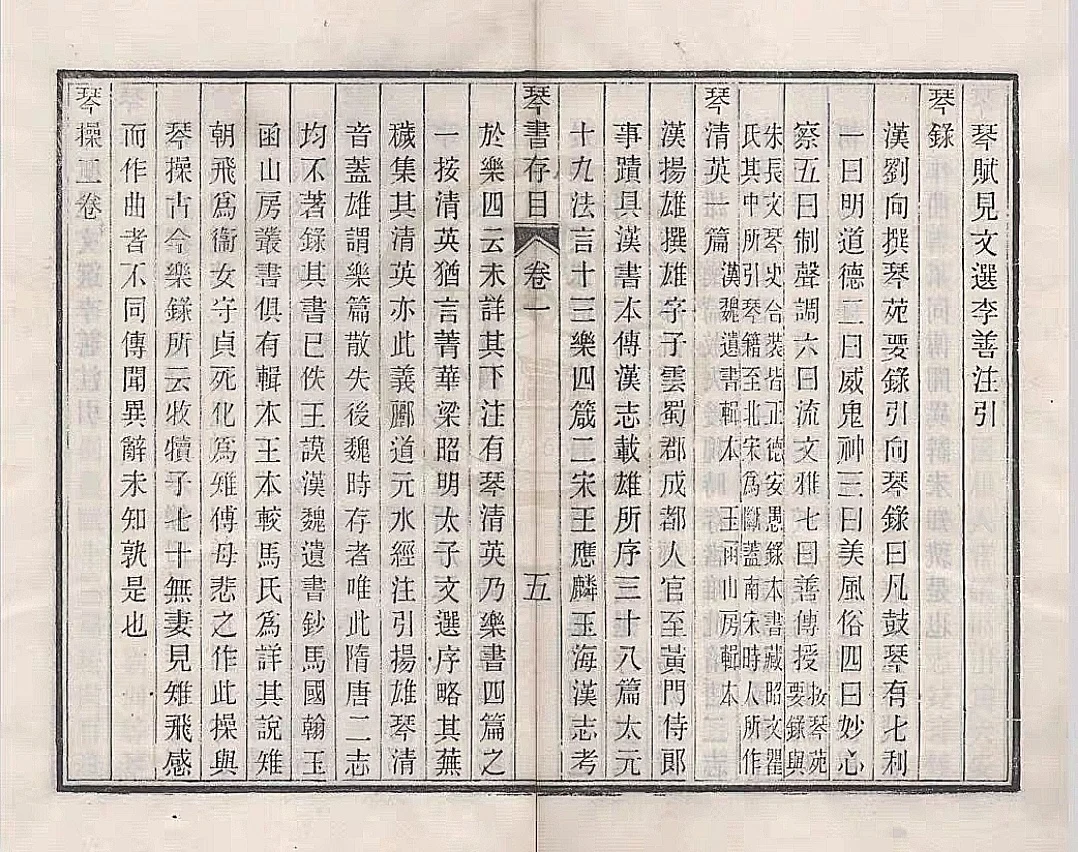 琴賦見文選李善注引
琴錄
漢劉向撰琴苑要錄引向琴錄曰凡鼓琴有七利
一曰明道德二曰威鬼神三曰美風俗四曰妙心
察五曰制聲調六曰流文雅七曰善傳授按琴苑
要錄與
朱長文琴史合裝皆正德安愚錄本書藏昭文瞿
氏其中所引琴籍至北宋爲斷蓋南宋時人所作
琴清英一篇漢魏遺書輯本
玉函山房輯本
漢揚雄撰雄字子雲蜀郡成都人官至黃門侍郎
事蹟具漢書本傳漢志載雄所序三十八篇太元
十九法言十三樂四箴二宋王應麟玉海漢志考
琴書存目 卷一 五
於樂四云未詳其下注有琴清英乃樂書四篇之
一按清英猶言菁華梁昭明太子文選序略其蕪
穢集其清英亦此義酈道元水經注引揚雄琴清
音蓋雄謂樂篇散失後魏時存者唯此隋唐二志
均不著錄其書已佚王謨漢魏遺書鈔馬國翰玉
函山房叢書俱有輯本王本較馬氏爲詳其說雉
朝飛爲衞女守貞死化爲雉傅母悲之作此操與
琴操古今樂錄所云牧犢子七十無妻見雉飛感
而作曲者不同傳聞異辭未知孰是也
琴操二卷